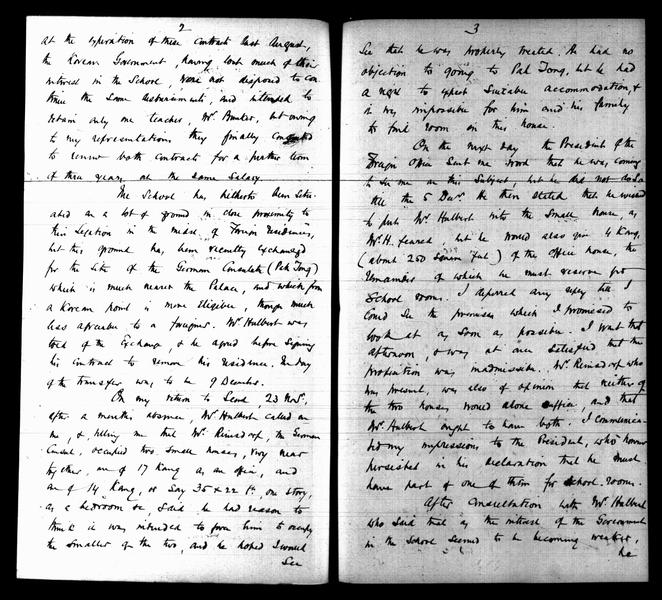 2
at the expiration of these contracts last August,
the Korean Government, having lost much of their
interest in the School, were not disposed to con
tinue the same disbursements, and intended to
retain only one teacher, Mr. Bunker, but owing
to my representations they finally consented
to renew both contracts for a further term
of three years at the same salary.
The School has hitherto been situ
ated on a lot of ground in close proximity to
this Legation in the midst of Foreign residences,
but this ground has been recently exchanged
for the site of the German Consulate (Pak Tong)
which is much nearer the Palace, and which from
a Korean point is more eligible, though much
less agreeable to a foreigner. Mr. Hulbert was
told of the Exchange, & he agreed before signing
his contract to remove his residence. The day
of the transfer was to be 9 December.
On my return to Seoul, 23 Nov.,
after a months absence, Mr. Hulbert called on
me, & telling me that Mr. Reinsdorf, the German
Consul, occupied two small houses, very near
together, one of 17 Kang as an office, and
one of 14 Kang, or say 35 x 22 ft, one story,
as a bedroom &c, said he had reason to
think it was intended to force him to occupy
the smaller of the two, and he hoped I would
see
3
See that he was properly treated. He had no
objection to going to Pak Tong, but he had
a right to expect suitable accommodation, &
it was impossible for him and his family
to find room in this house.
On the next day the President of the
Foreign Office sent me word that he was coming
to see me on this subject but he did not do so
till the 5 Dec. He then stated that he wished
to put Mr. Hulbert into the small house, as
Mr. H. feared, but he would also give 4 Kang,
(about 200 square feet) of the office house, the
remainder of which he must reserve for
School rooms. I deferred any reply till I
could see the premises which I promised to
look at as soon as possible. I went that
afternoon, & was at once satisfied that the
proposition was inadmissible. Mr. Reinsdorf who
was present, was also of opinion that neither of
the two houses would alone suffice, and that
Mr. Hulbert ought to have both. I communica-
ted my impressions to the President, who however
persisted in his declaration that he must
have part of one of them for School rooms.
After consultation with Mr. Hulbert
who said that as the interest of the Government
in the School seemed to be becoming weaker,
he